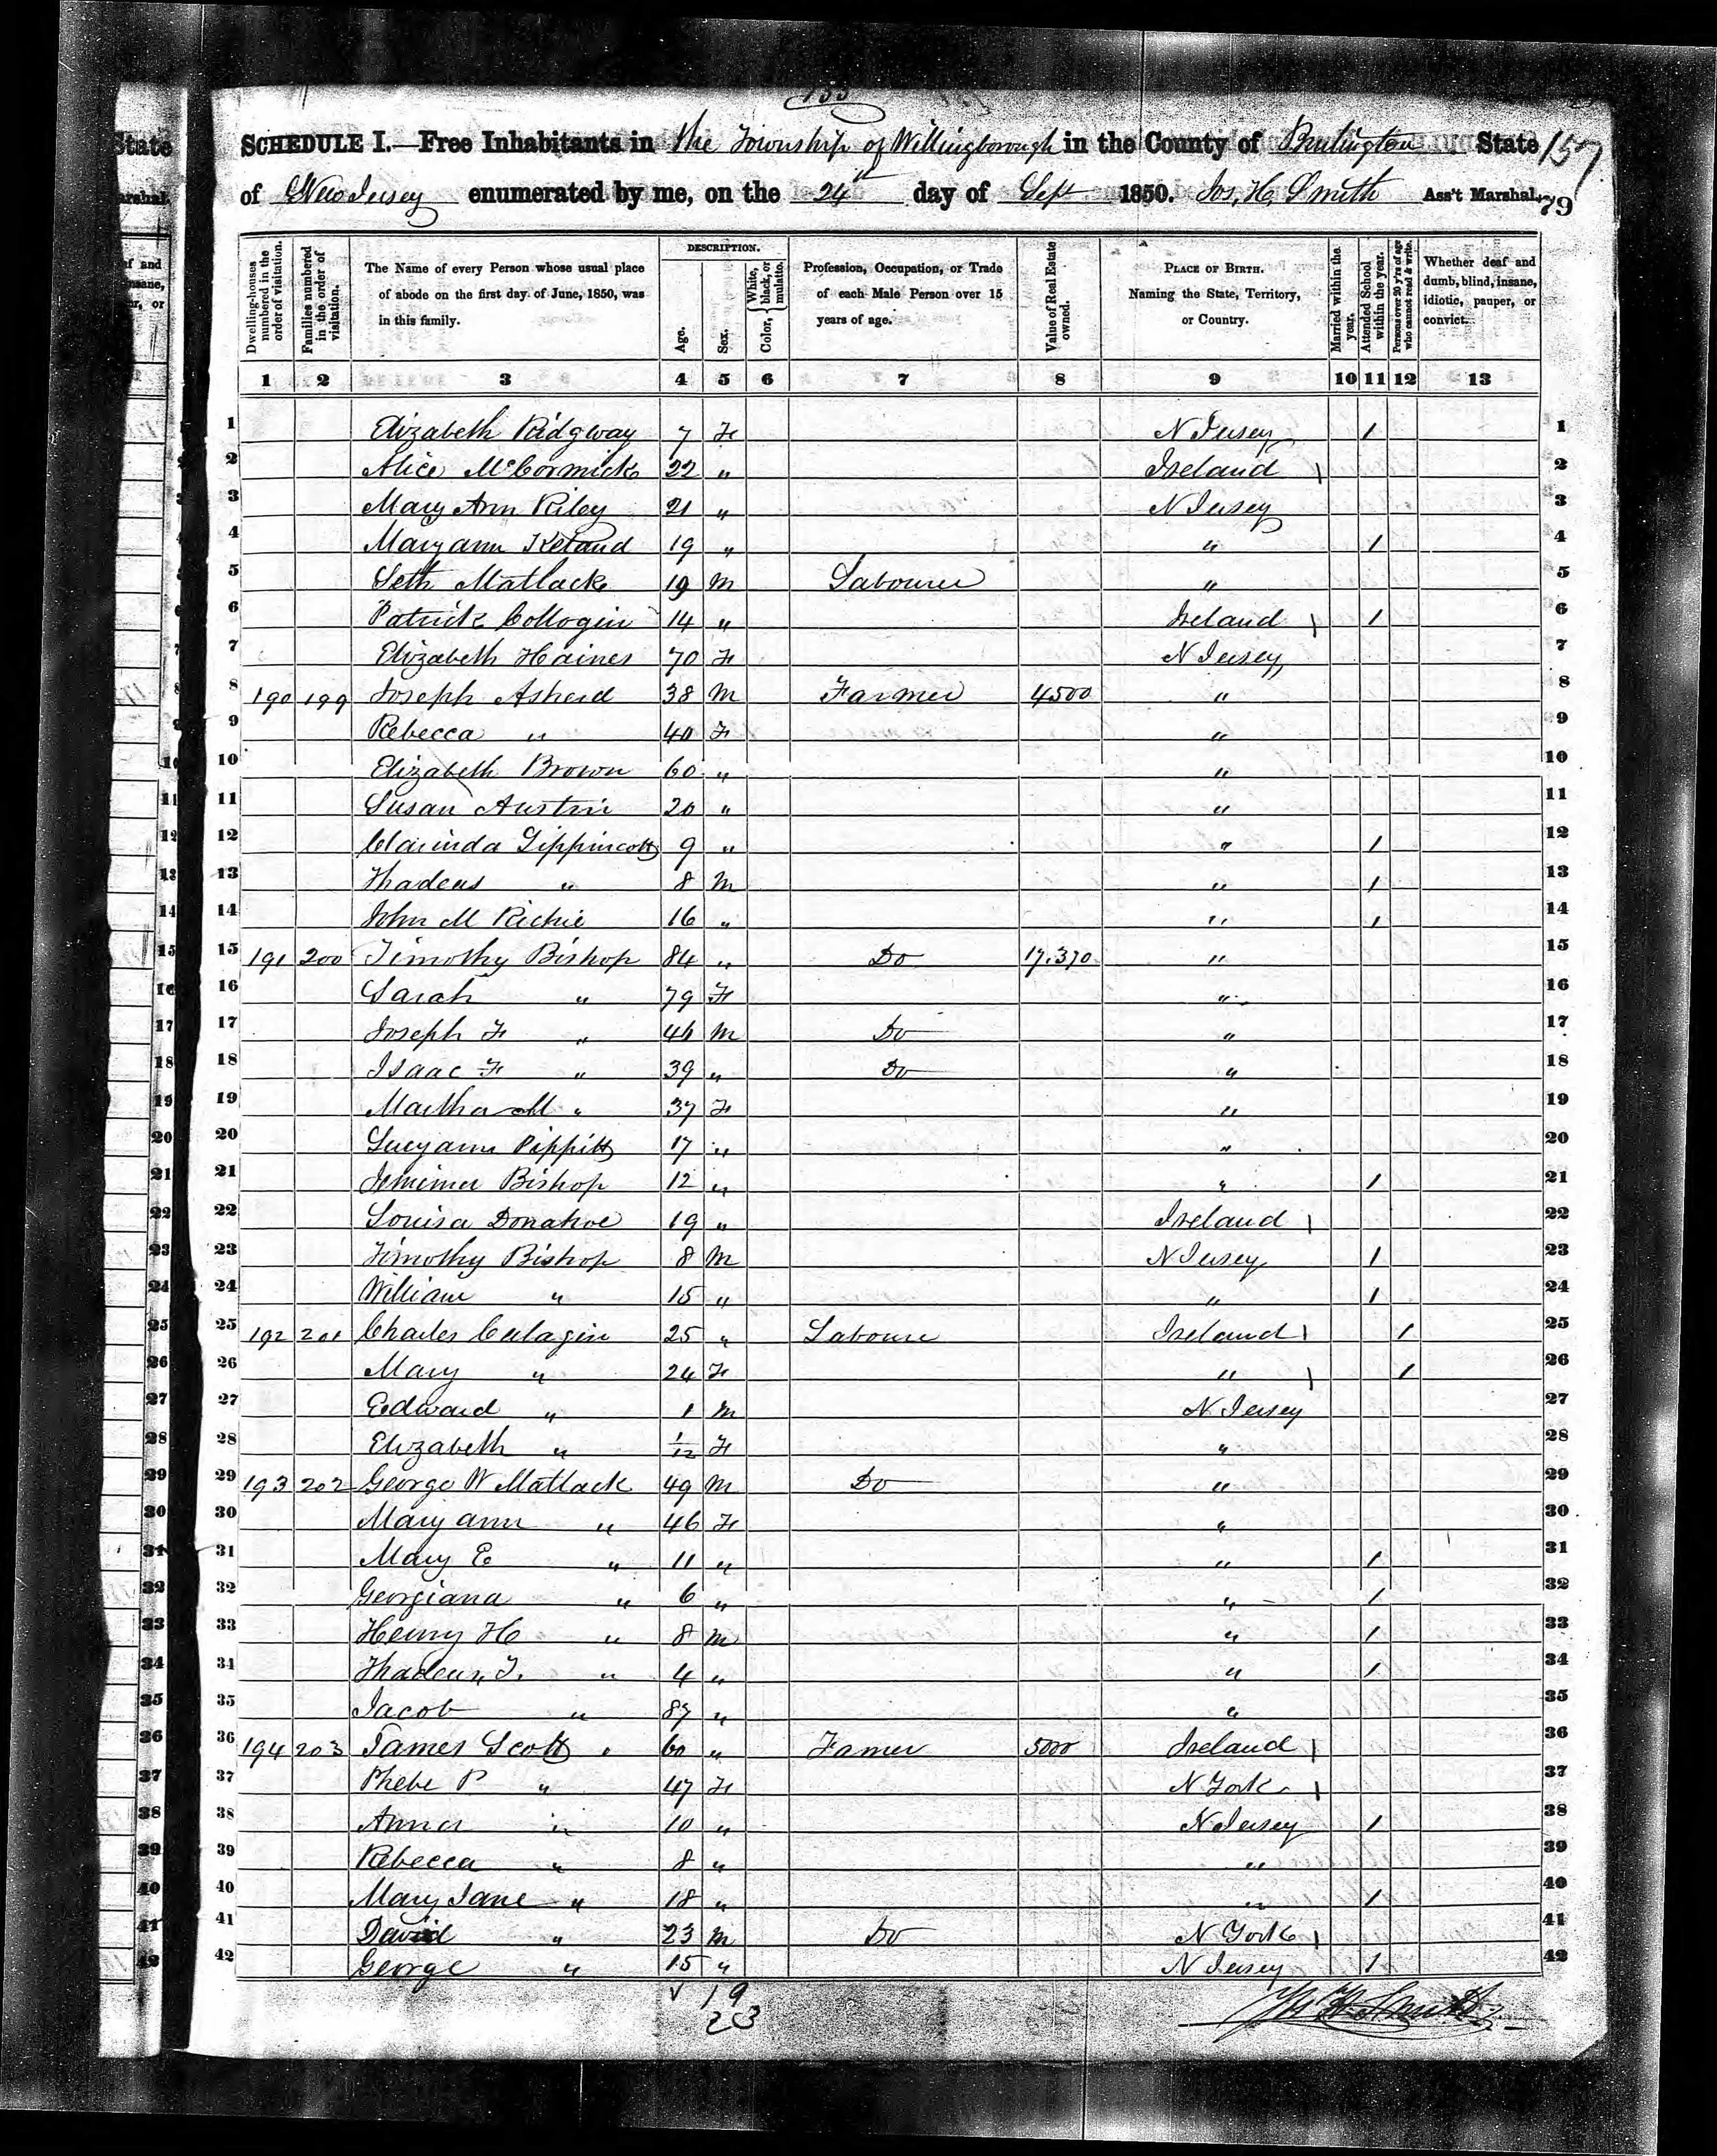 155
SCHEDULE I.—Free Inhabitants in the Township of Willingborough in the County of Burlington State 157
of New Jersey enumerated by me, on the 24th day of Sept 1850. Jos. H. Smith Ass't Marshal. 79
Dwelling-houses numbered in the order of visitation. Families numbered in the order of visitation. The Name of every Person whose usual place of abode on the first day of June, 1850, was in this family. DESCRIPTION. Age. Sex. Color, { White, black, or mulatto. Profession, Occupation, or Trade of each Male Person over 15 years of age. Value of Real Estate owned. PLACE OF BIRTH. Naming the State, Territory, or Country. Married within the year. Attended School within the year. Persons over 20 y'rs of age who cannot read & write. Whether deaf and dumb, blind, insane, idiotic, pauper, or convict.
1 2 3 4 5 6 7 8 9 10 11 12 13
1 Elizabeth Ridgway 7 F N Jersey 1 1
2 Alice McCormick 22 " Ireland 2
3 Mary Ann Riley 21 " N Jersey 3
4 Maryann Keland 19 " " 1 4
5 Seth Matlack 19 M Labourer " 5
6 Patrick Collogin 14 " Ireland 1 6
7 Elizabeth Haines 70 F N Jersey 7
8 190 199 Joseph Ashead 38 M Farmer 4500 " 8
9 Rebecca " 40 F " 9
10 Elizabeth Brown 60 " " 10
11 Susan Austin 20 " " 11
12 Clarinda Lippincott 9 " " 1 12
13 Thadeus " 8 M " 1 13
14 John M Richie 16 " " 1 14
15 191 200 Timothy Bishop 84 " Do 17.370 " 15
16 Sarah " 79 F " 16
17 Joseph F " 46 M Do " 17
18 Isaac F " 39 " Do " 18
19 Martha M " 37 F " 19
20 Lucyann Pippitt 17 " " 20
21 Jemimer Bishop 12 " " 1 21
22 Louisa Donahoe 19 " Ireland 22
23 Timothy Bishop 8 M N Jersey 1 23
24 William " 15 " " 1 24
25 192 201 Charles Culagin 25 " Laboure Ireland 1 25
26 Mary " 24 F " 1 26
27 Edward " 1 M N Jersey 27
28 Elizabeth " 1/12 F " 28
29 193 202 George W Matlack 49 M Do " 29
30 Mary ann " 46 F " 30
31 Mary E " 11 " " 1 31
32 Georgiana " 6 " " 1 32
33 Henry H " 8 M " 1 33
34 Thadeus T. " 4 " " 1 34
35 Jacob " 87 " " 35
36 194 203 James Scott 60 " Famer 5000 Ireland 36
37 Phebe P " 47 F N York 37
38 Anna " 10 " N Jersey 1 38
39 Rebecca " 8 " " 39
40 Mary Jane " 18 " " 1 40
41 David " 23 M Do N York 41
42 George " 15 " N Jersey 1 42
19
23
Jos H Smith